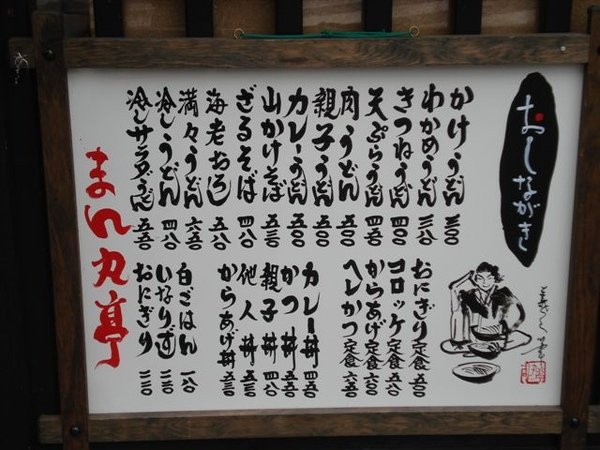 おしながき
かけうどん 三〇〇
わかめうどん 三八〇
きつねうどん 四〇〇
天ぷらうどん 四五〇
肉うどん 五〇〇
親子うどん 五〇〇
カレーうどん 五〇〇
山かけそば 五三〇
ざるそば 四八〇
海老おろし 五八〇
満々うどん 六五〇
冷しうどん 四八〇
冷しサラダうどん 五五〇
おにぎり定食 五〇〇
コロッケ定食 五八〇
からあげ定食 六三〇
ヘレかつ定食 六五〇
カレー丼 四五〇
かつ丼 五五〇
親子丼 四八〇
他人丼 五三〇
からあげ丼 五三〇
白ごはん 一八〇
いなりずし 二三〇
おにぎり 二二〇
まん丸亭